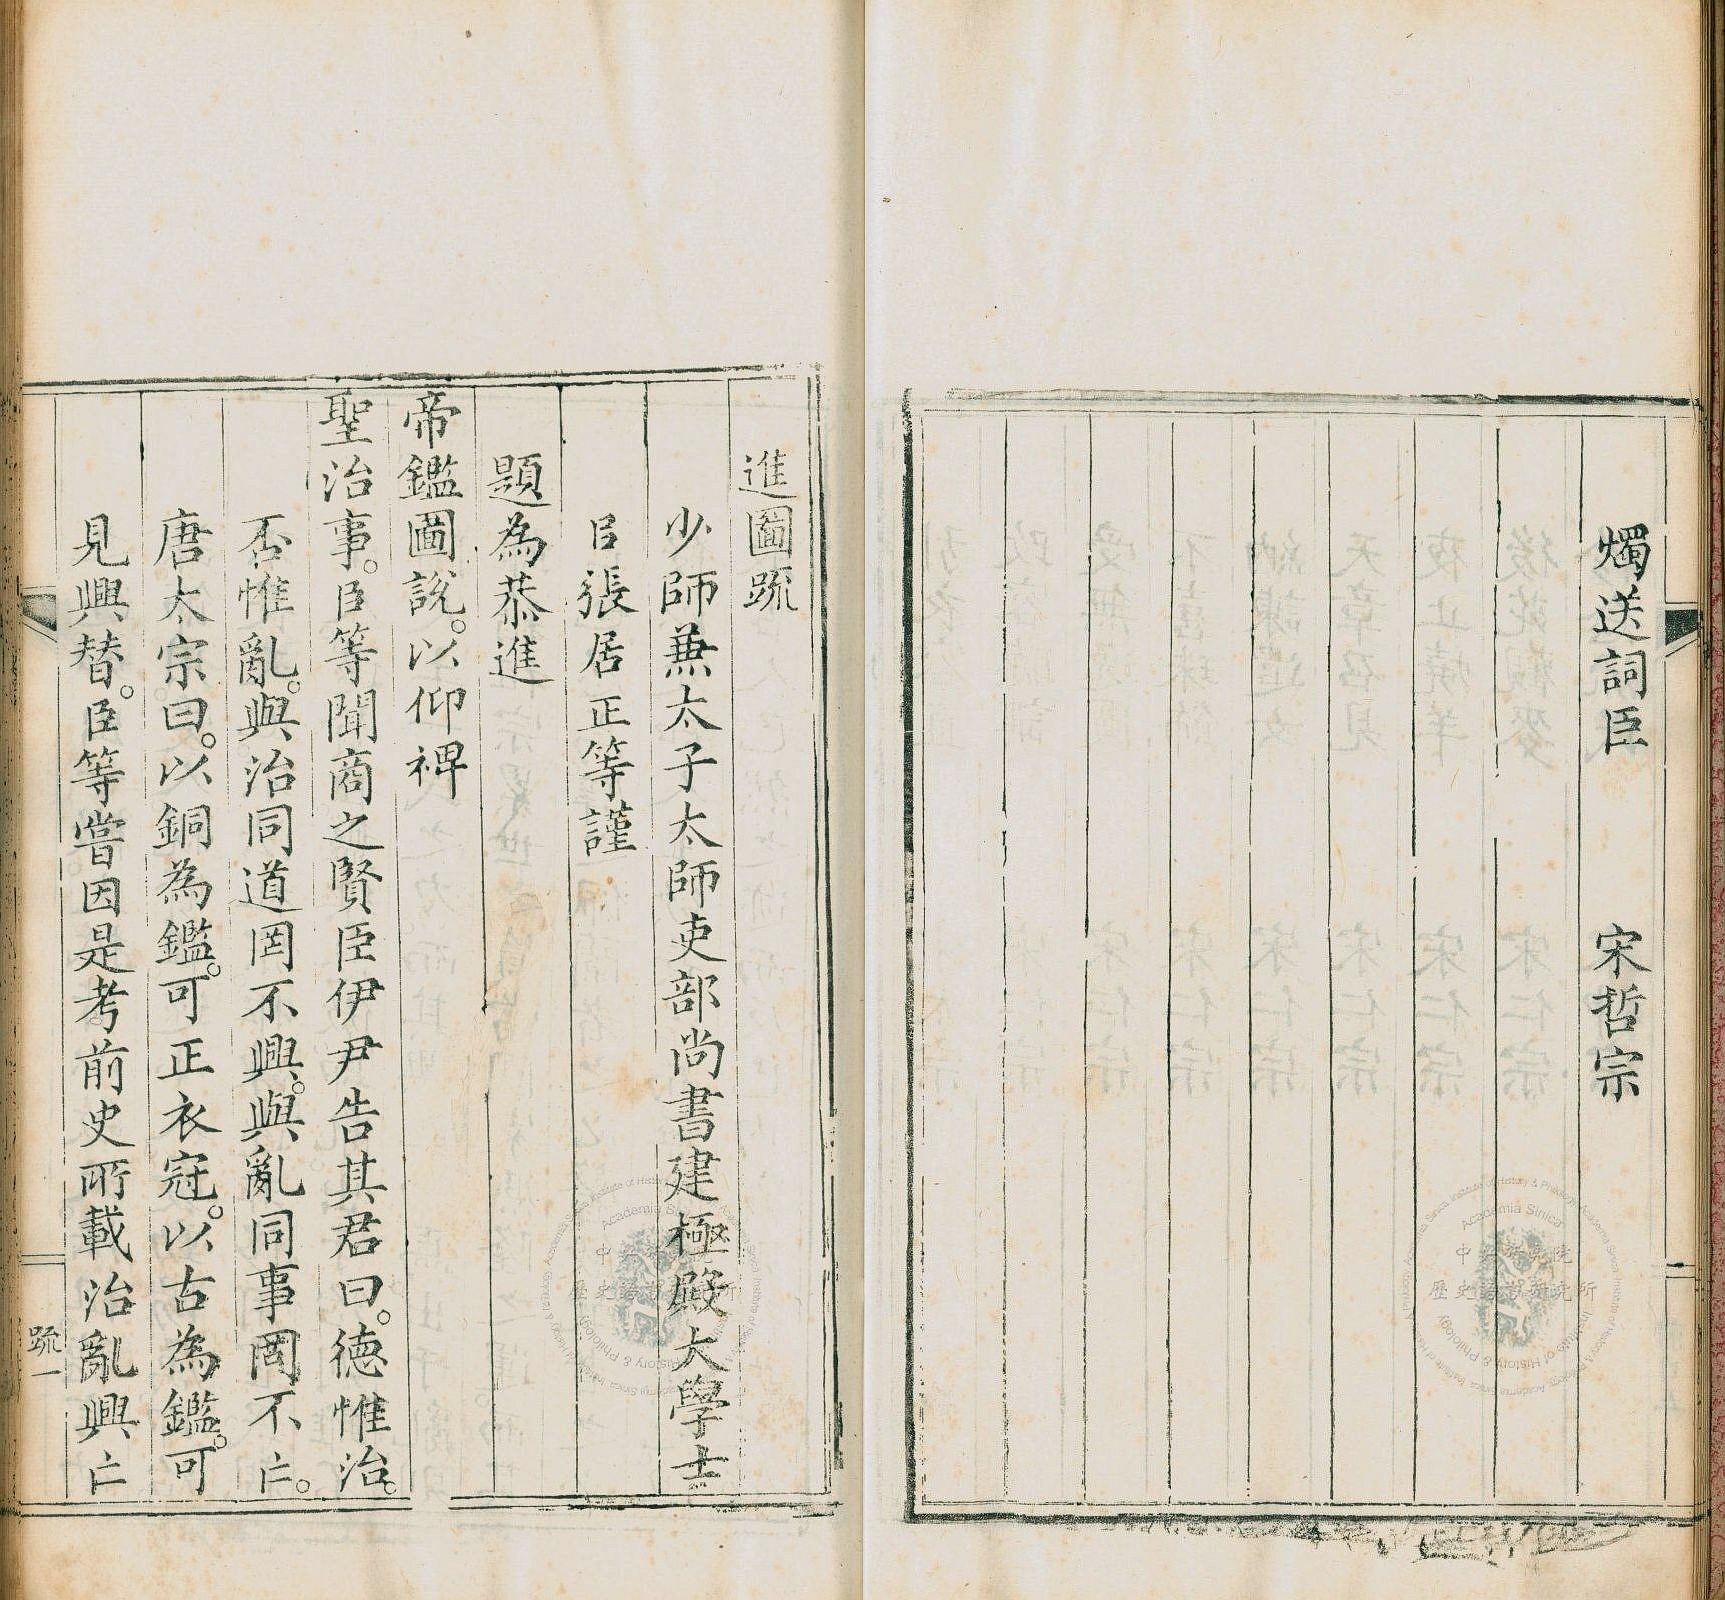 燭送詞臣　宋哲宗
進圖疏
少師兼太子太師吏部尚書建極殿大學士
臣張居正等謹
題為恭進
帝鑑圖說。以仰裨
聖治事。臣等聞商之賢臣伊尹告其君曰。德惟治。
否惟亂。與治同道罔不興。與亂同事罔不亡。
唐太宗曰。以銅為鑑。可正衣冠。以古為鑑。可
見興替。臣等嘗因是考前史所載治亂興亡
疏一
中央研究院
歷史語言研究所
Academia Sinica
Institute of History & Philology
中央研究院
歷史語言研究所
Academia Sinica
Institute of History & Philology